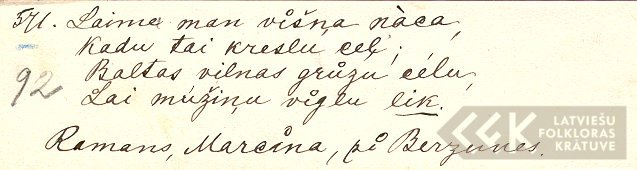 571. Laime man višņa nàca,
Kadu tai kreslu ceļ;
Baltas vilnas grůzu célu,
92
Lai múžiņu vìglu lik.
Ramans, Marcína, pì Berzunes.
LATVIEŠU
FOLKLORAS
KRĀTUVE